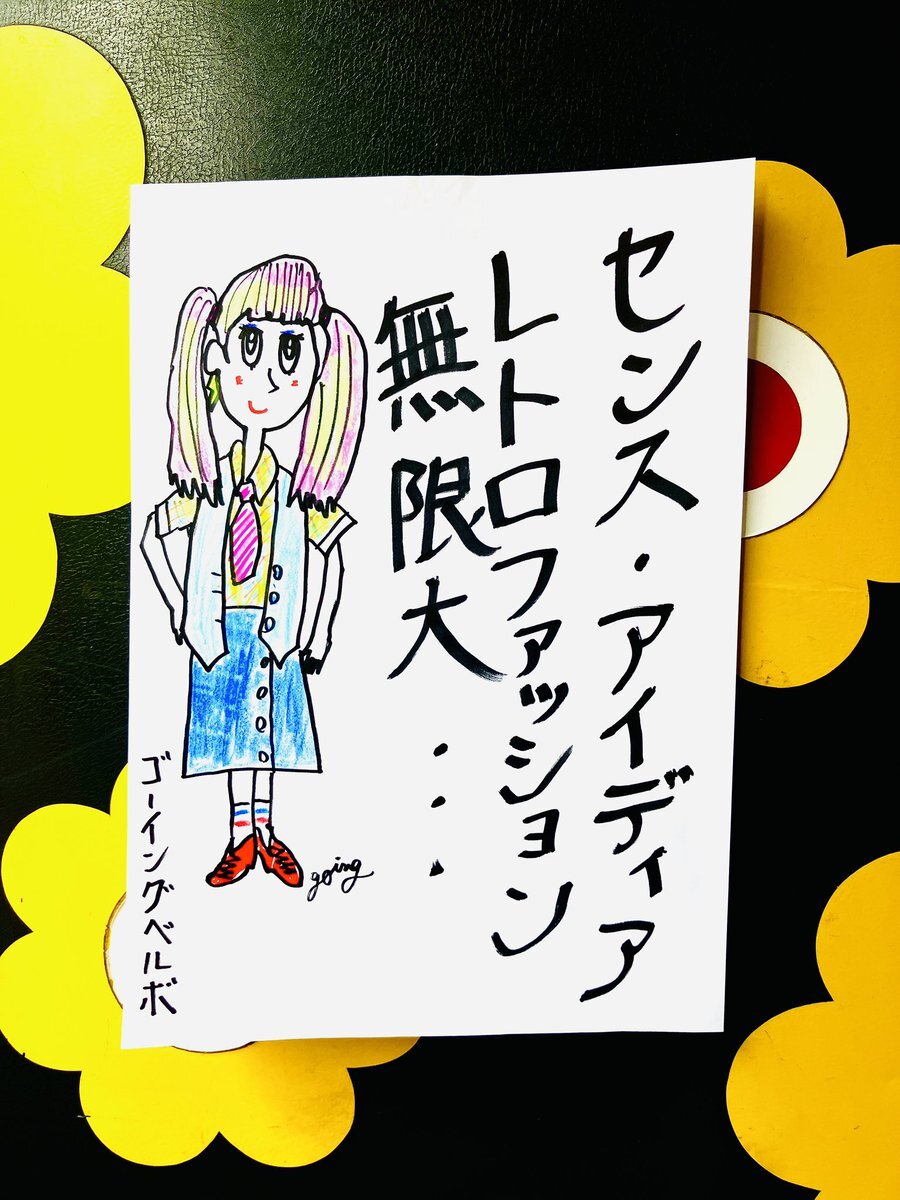 センス・アイディア
レトロファッション
無限大・・・
ゴーイングベルボ
going